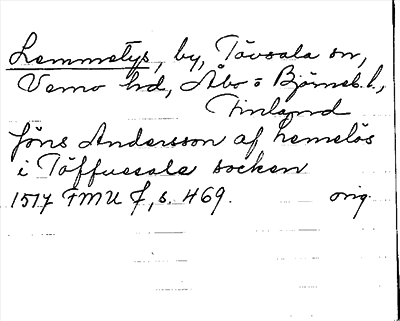 Lemmetys, by, Tövsala sn,
Vemo hd, Åbo o Björneb. l.,
Finland
Jöns Andersson af hemelös
i Töffuesala socken
1517 FMU f, s. 469. orig